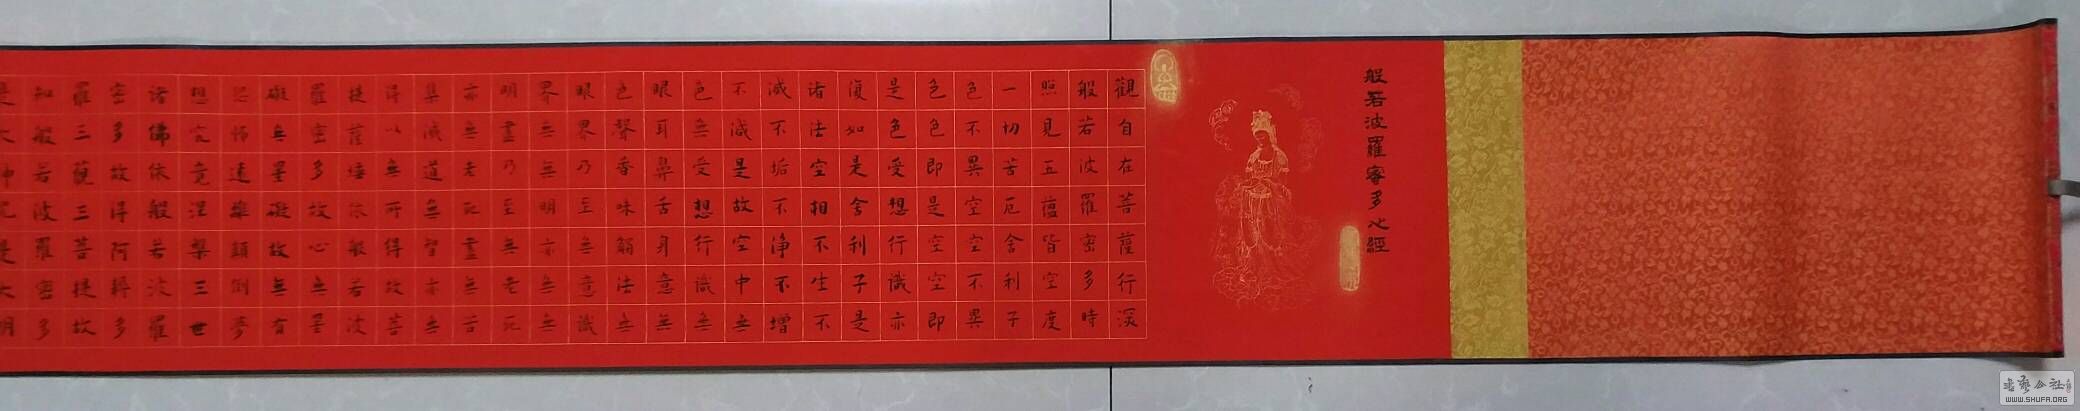 般若波羅蜜多心經
觀自在菩薩行深
般若波羅密多時
照見五蘊皆空度
一切苦厄舍利子
色不異空空不異
色色即是空空即
是色受想行識亦
復如是舍利子是
諸法空相不生不
滅不垢不淨不增
不減是故空中無
色無受想行識無
眼耳鼻舌身意無
色聲香味觸法無
眼界乃至無意識
界無無明亦無無
明盡乃至無老死
亦無老死盡無苦
集滅道無智亦無
得以無所得故菩
提薩埵依般若波
羅密多故心無罣
礙無罣礙故無有
恐怖遠離顛倒夢
想究竟涅槃三世
諸佛依般若波羅
密多故得阿耨多
羅三藐三菩提故
知般若波羅密多
是大神咒是大明
WWW.SHUFA.ORG